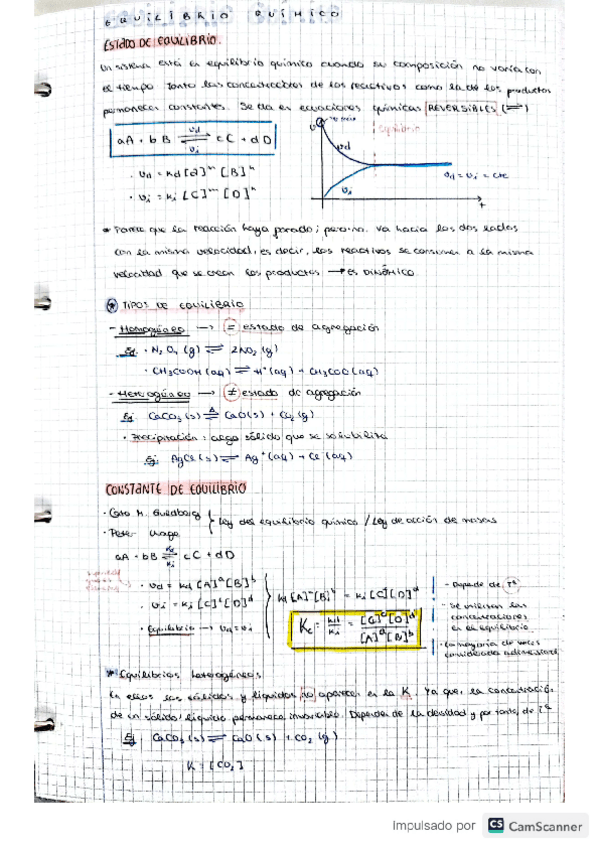 EQUILIBRIO QUÍMICO
ESTADO DE EQUILIBRIO.
Un sistema está en equilibrio químico cuando su composición no varía con
el tiempo. Tanto las concentraciones de los reactivos como la de los productos
permanecen constantes. Se da en ecuaciones químicas REVERSIBLES (⇌)
aA + bB ⇌ cC + dD
vd
vi
· vd = Kd [A]ᵐ [B]ⁿ
· vi = Ki [C]ᵐ [D]ⁿ
v
equilibrio
vd
vi
vd = vi = cte
t
* Parece que la reacción haya parado; pero no. Va hacia los dos lados
con la misma velocidad, es decir, los reactivos se consumen a la misma
velocidad que se crean los productos → es DINÁMICO.
* TIPOS DE EQUILIBRIO
- Homogéneo → = estado de agregación
Ej: · N₂O₄ (g) ⇌ 2NO₂ (g)
· CH₃COOH (aq) ⇌ H⁺(aq) + CH₃COO (aq)
- Heterogéneo → ≠ estado de agregación
Ej: CaCO₃ (s) ⇌ CaO(s) + CO₂ (g)
· Precipitación: algo sólido que se solubiliza
Ej: AgCl (s) ⇌ Ag⁺(aq) + Cl⁻(aq)
CONSTANTE DE EQUILIBRIO
· Cato M. Guldberg
· Peter Waage
Ley del equilibrio químico / Ley de acción de masas
aA + bB ⇌ cC + dD
Kd
Ki
· vd = Kd [A]ᵃ[B]ᵇ
· vi = Ki [C]ᶜ[D]ᵈ
· Equilibrio → vd = vi
Kd [A]ᵃ[B]ᵇ = Ki [C]ᶜ[D]ᵈ
Kc = Kd/Ki = [C]ᶜ[D]ᵈ / [A]ᵃ[B]ᵇ
- Depende de Tª
- Se utilizan las
concentraciones
en el equilibrio
· La mayoría de veces
considerada adimensional
* Equilibrios heterogéneos
En ellos los sólidos y líquidos no aparecen en la K. Ya que, la concentración
de un sólido/líquido permanece invariable. Depende de la densidad y por tanto, de Tª
Ej: CaCO₃ (s) ⇌ CaO (s) + CO₂ (g)
K = [CO₂]
Impulsado por CS CamScanner